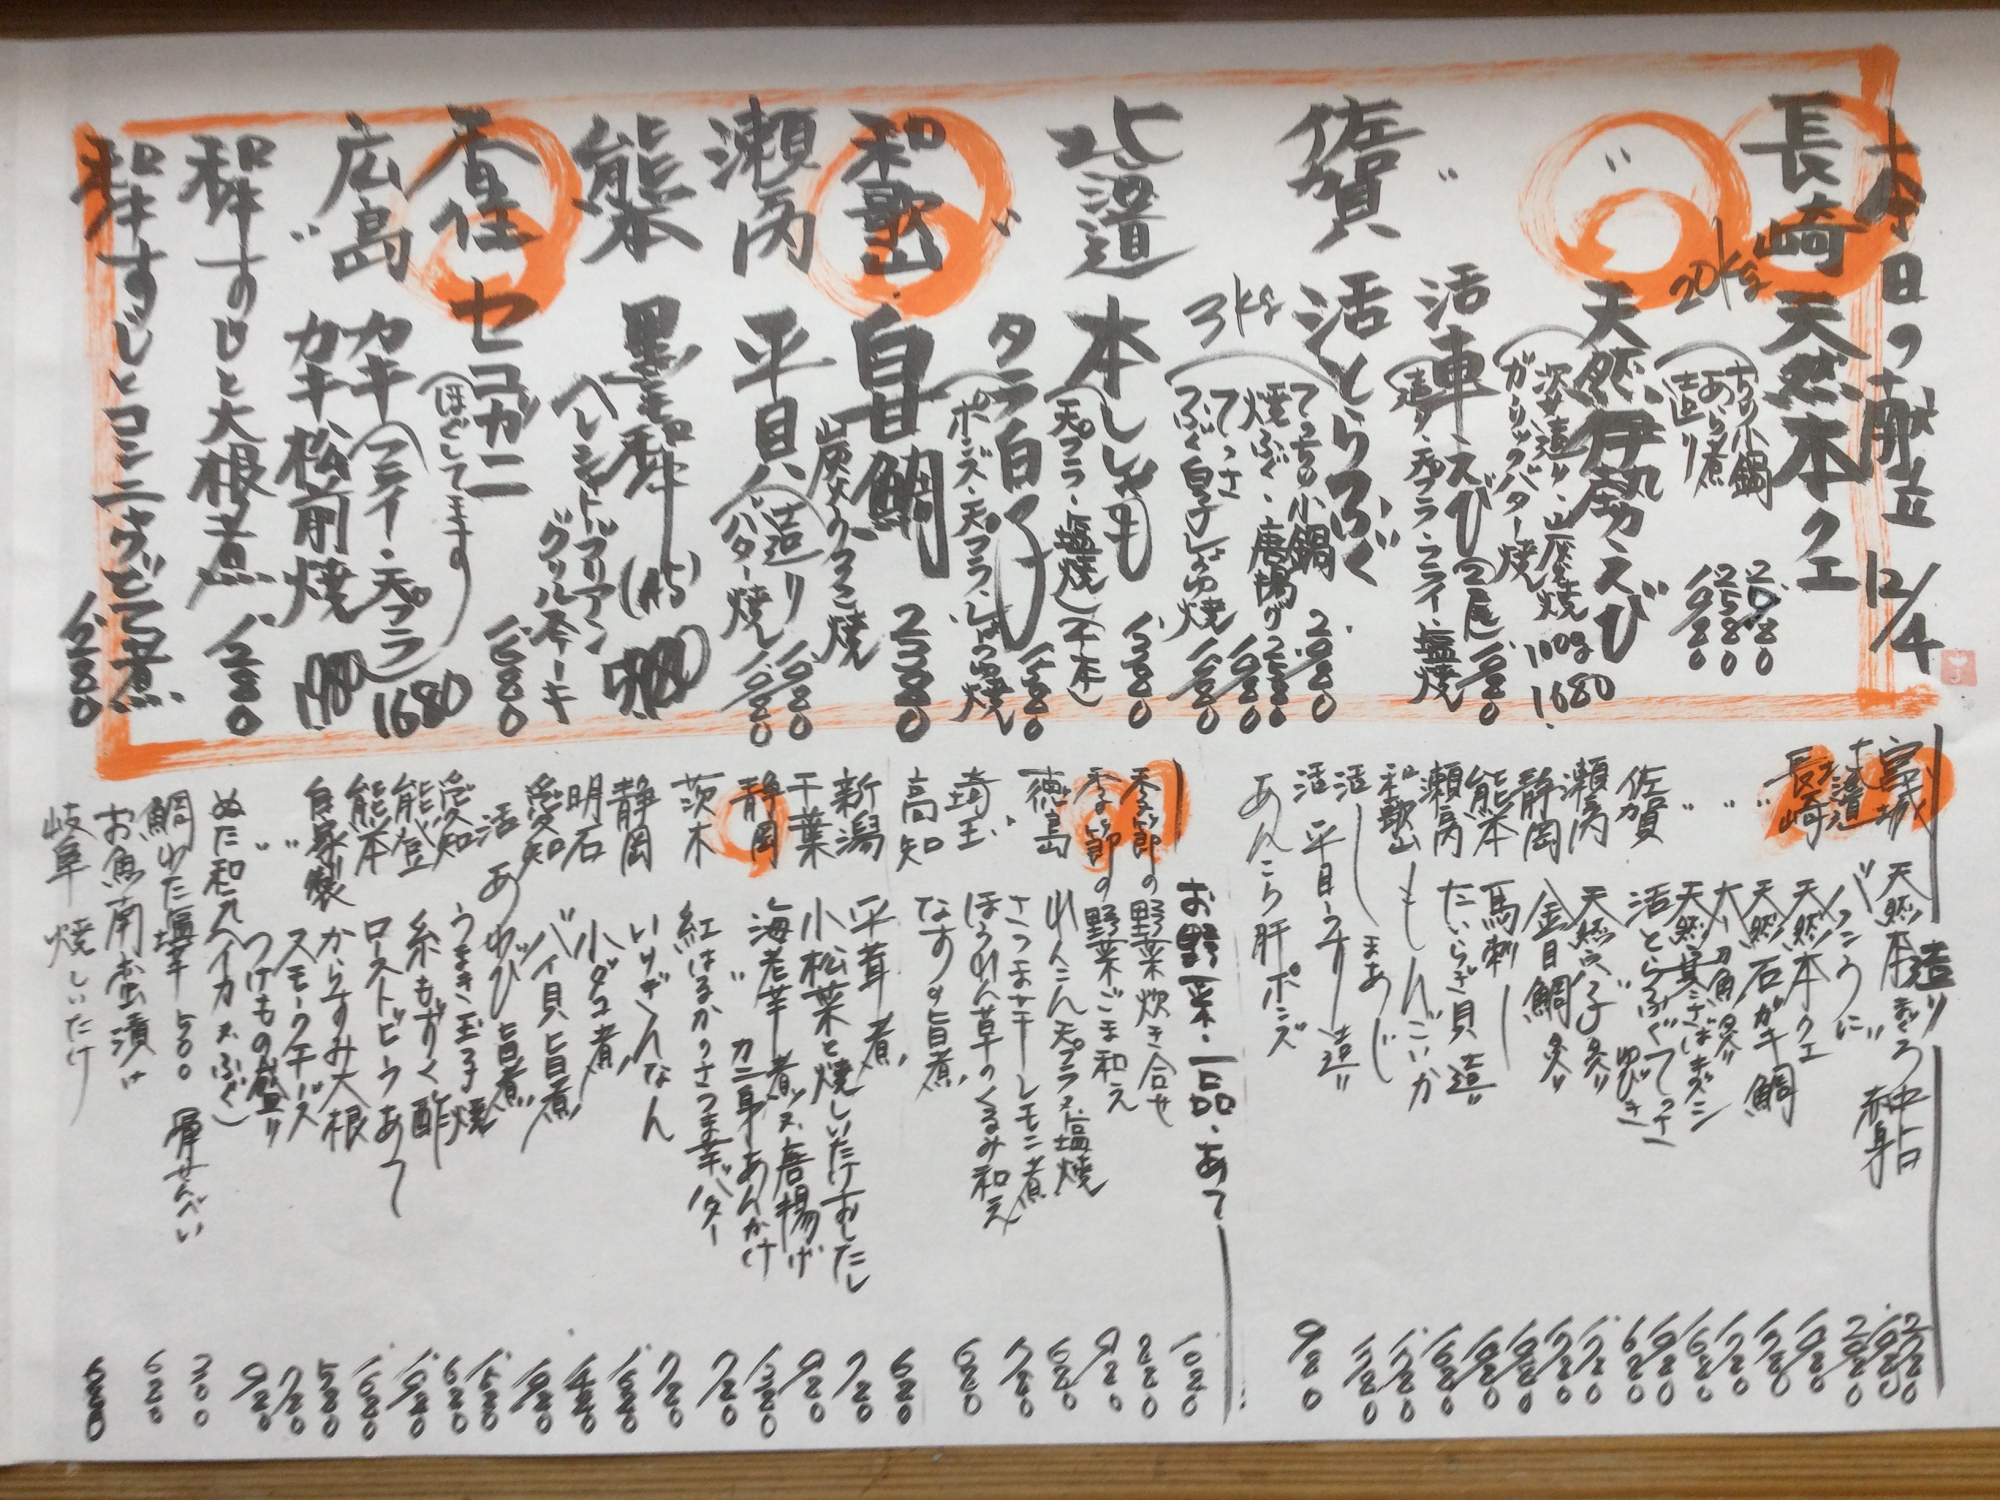 本日の献立 12/4
長崎 天然本クエ
20kg
ちり小鍋 2080
あら煮 2580
造り 1980
〃 天然伊勢えび
次郎造り・山炭焼 100g 1680
ガーリックバター焼
〃 活車えび(2尾) 1080
造り・天プラ・フライ・塩焼
佐賀 活とらふぐ
3kg
てっちり小鍋 2080
焼ふぐ・唐揚げ 2580
てっさ 1980
ふぐ白子しょうゆ焼 1680
北海道 本ししゃも 1380
(天プラ・塩焼)(三本)
〃 タラ白子 1580
ポンズ・天プラ・しょうゆ焼
和歌山 白甘鯛 2380
炭火うろこ焼
瀬戸内 平目
造り 1680
バター焼 1080
熊本 黒毛和牛(A5) 5980
ヘレシャトーブリアン
グリルステーキ
香住 セコガニ 1680
(ほぐしてます)
広島 カキ(フライ・天プラ) 1680
〃 カキ松前焼 1980
和牛すじと大根煮 1280
和牛すじとコンニャクどて煮 1280
造り
宮城 天然本まぐろ 中トロ 2780
赤身 1980
北海道 バフンうに 2080
長崎 天然本クエ 1980
〃 天然石ガキ鯛 1780
佐賀 活とらふぐてっさ 1980
瀬戸内 天然穴子炙り
静岡 金目鯛炙り
熊本 馬刺し
瀬戸内 たいらぎ貝造り
和歌山 もんごいか
活 しまあじ
活 平目うす造り
あんこう肝ポンズ 980
お野菜・一品・あて
季節の野菜炊き合せ 1080
季節の野菜ごま和え 880
徳島 れんこん天プラ又塩焼 980
〃 さつま芋レモン煮 680
埼玉 ほうれん草のくるみ和え 780
高知 なすの旨煮 680
新潟 平茸煮 680
千葉 小松菜と焼しいたけおひたし 780
静岡 海老芋煮又唐揚げ 980
〃 カニ身あんかけ 1380
茨木 紅はるかのさつま芋バター 780
静岡 いりぎんなん 780
明石 小ダコ煮
愛知 バイ貝旨煮
活 あわび旨煮
愛知 うまき玉子焼
能登 糸もずく酢 680
熊本 ローストビーフあて
自家製 からすみ大根
〃 スモークチーズ 580
〃 つけもの盛り 780
ぬた和え(イカ又ふぐ) 980
鯛わた塩辛 500 厚せんべい 300
お魚南蛮漬け 680
岐阜 焼しいたけ 680